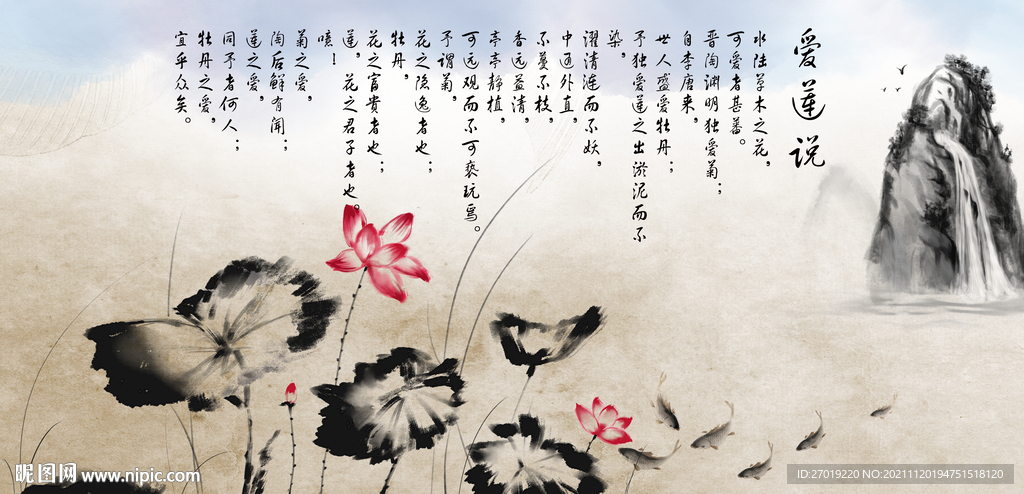 爱莲说
水陆草木之花，
可爱者甚蕃。
晋陶渊明独爱菊；
自李唐来，
世人盛爱牡丹；
予独爱莲之出淤泥而不
染，
濯清涟而不妖，
中通外直，
不蔓不枝，
香远益清，
亭亭静植，
可远观而不可亵玩焉。
予谓菊，
花之隐逸者也；
牡丹，
花之富贵者也；
莲，花之君子者也。
噫！
菊之爱，
陶后鲜有闻；
莲之爱，
同予者何人；
牡丹之爱，
宜乎众矣。
昵图网 www.nipic.com
ID:27019220 NO:20211120194751518120